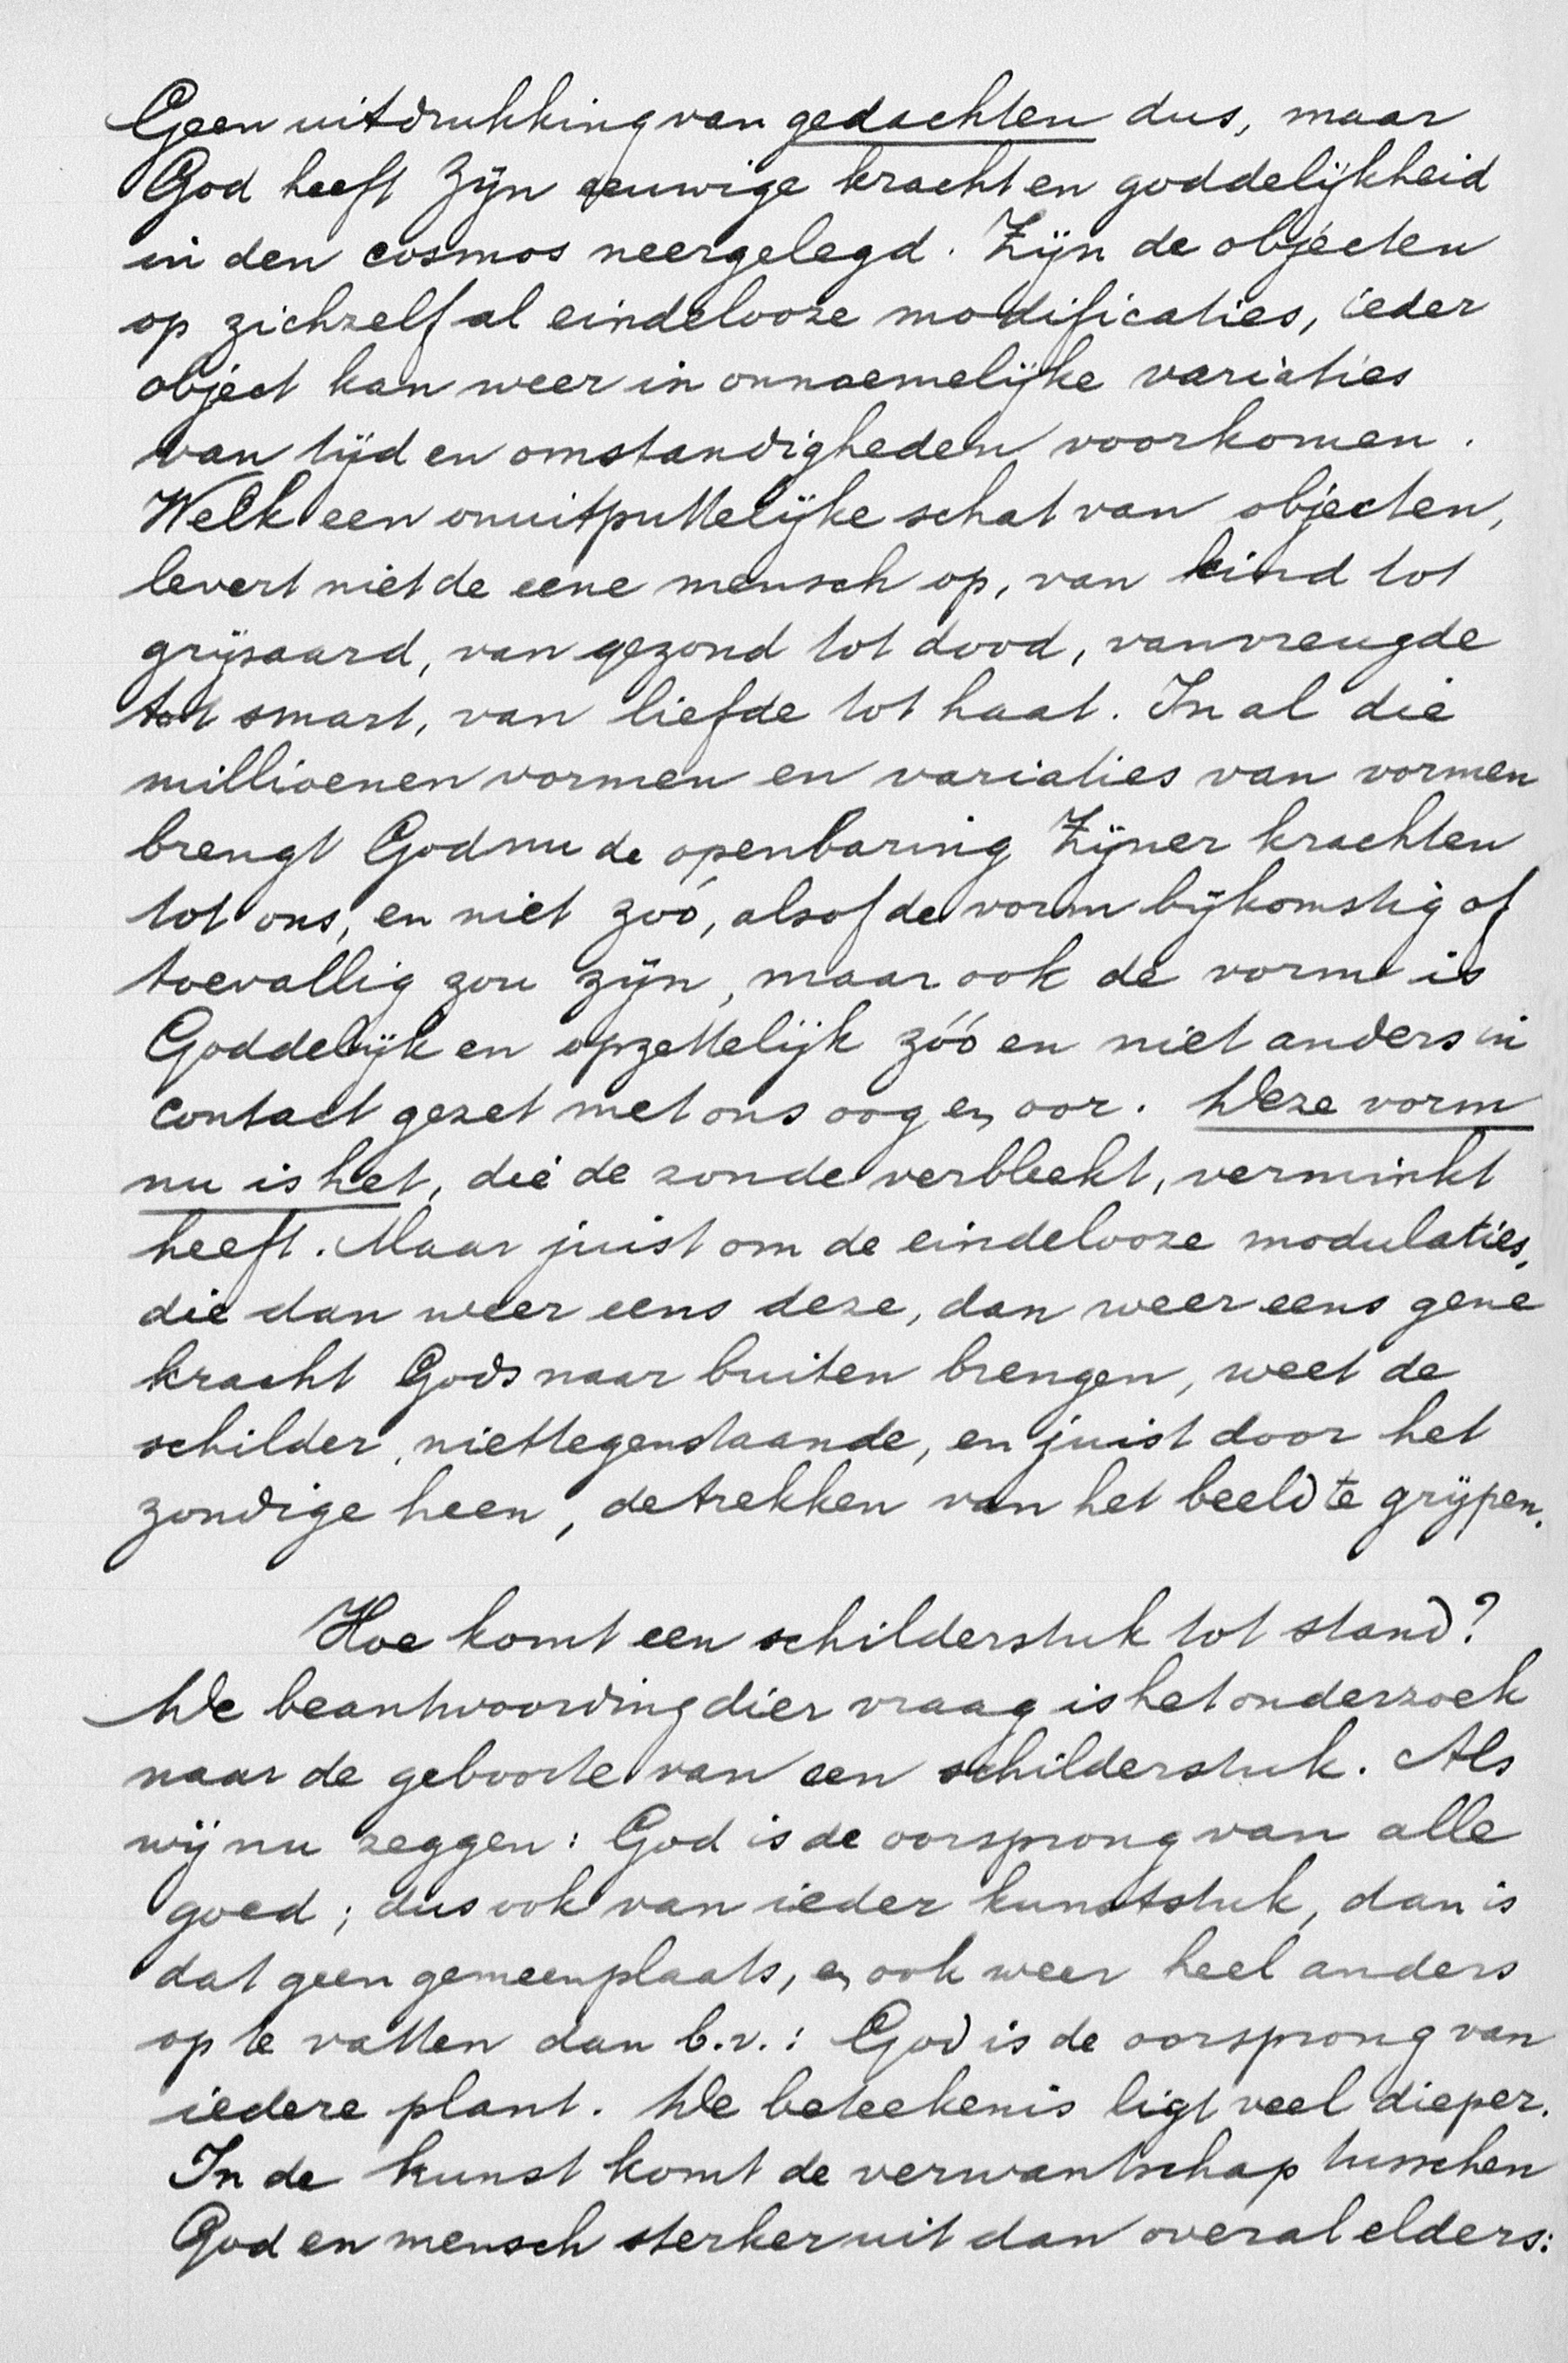 Geen uitdrukking van gedachten dus, maar
God heeft Zijn eeuwige kracht en goddelijkheid
in den cosmos neergelegd. Zijn de objecten
op zichzelf al eindelooze modificaties, ieder
object kan weer in onnoemelijke variaties
van tijd en omstandigheden voorkomen.
Welk een onuitputtelijke schat van objecten,
levert niet de eene mensch op, van kind tot
grijsaard, van gezond tot dood, van vreugde
tot smart, van liefde tot haat. In al die
millioenen vormen en variaties van vormen
brengt God nu de openbaring Zijner krachten
tot ons, en niet zoó, alsof de vorm bijkomstig of
toevallig zou zijn, maar ook de vorm is
Goddelijk en opzettelijk zóó en niet anders in
contact gezet met ons oog en oor. Deze vorm
nu is het, die de zonde verbleekt, verminkt
heeft. Maar juist om de eindelooze modulaties,
die dan weer eens deze, dan weer eens gene
kracht Gods naar buiten brengen, weet de
schilder, niettegenstaande, en juist door het
zondige heen, de trekken van het beeld te grijpen.
Hoe komt een schilderstuk tot stand?
De beantwoording dier vraag is het onderzoek
naar de geboorte van een schilderstuk. Als
wij nu zeggen: God is de oorsprong van alle
goed; dus ook van ieder kunststuk, dan is
dat geen gemeenplaats, en ook weer heel anders
op te vatten dan b.v.: God is de oorsprong van
iedere plant. De beteekenis ligt veel dieper.
In de kunst komt de verwantschap tusschen
God en mensch sterker uit dan overal elders: